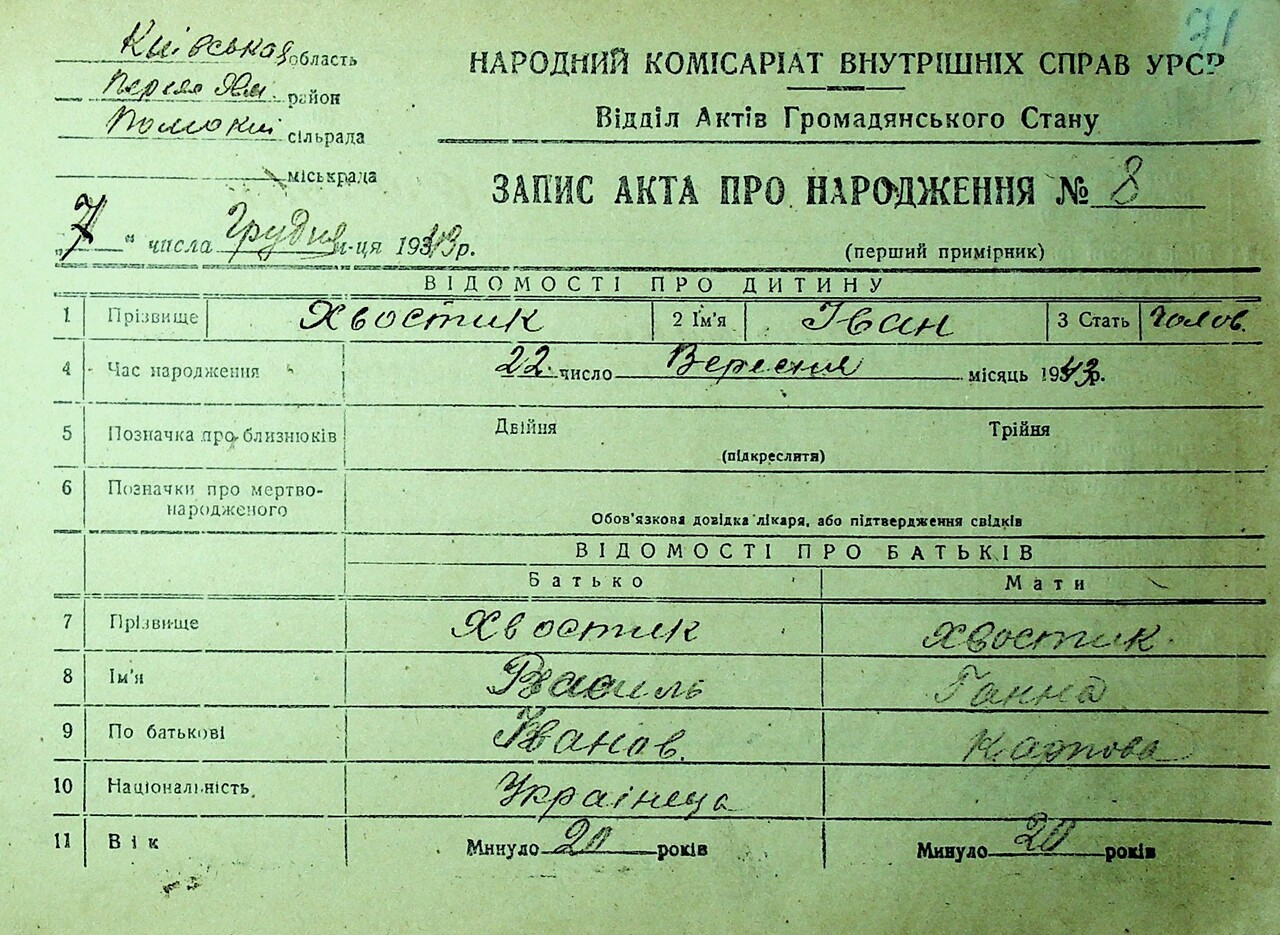 71
Київська область
Переяс Хм. район
Помокли сільрада
міськрада
НАРОДНИЙ КОМІСАРІАТ ВНУТРІШНІХ СПРАВ УРСР
Відділ Актів Громадянського Стану
ЗАПИС АКТА ПРО НАРОДЖЕННЯ № 8
„7“ числа Грудня м-ця 1943 р.
(перший примірник)
ВІДОМОСТІ ПРО ДИТИНУ
1 Прізвище Хвостик 2 Ім'я Іван 3 Стать Чолов.
4 Час народження 22 число Вересня місяць 1943 р.
5 Позначка про близнюків Двійня Трійня
(підкреслити)
6 Позначки про мертво-
народженого
Обов'язкова довідка лікаря, або підтвердження свідків
ВІДОМОСТІ ПРО БАТЬКІВ
Батько Мати
7 Прізвище Хвостик Хвостик.
8 Ім'я Василь Ганна
9 По батькові Іванов. Карпова
10 Національність Українеца
11 Вік Минуло 20 років Минуло 20 років